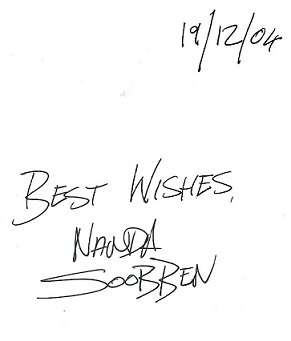 19/12/04
BEST WISHES,
NANDA
SOOBBEN